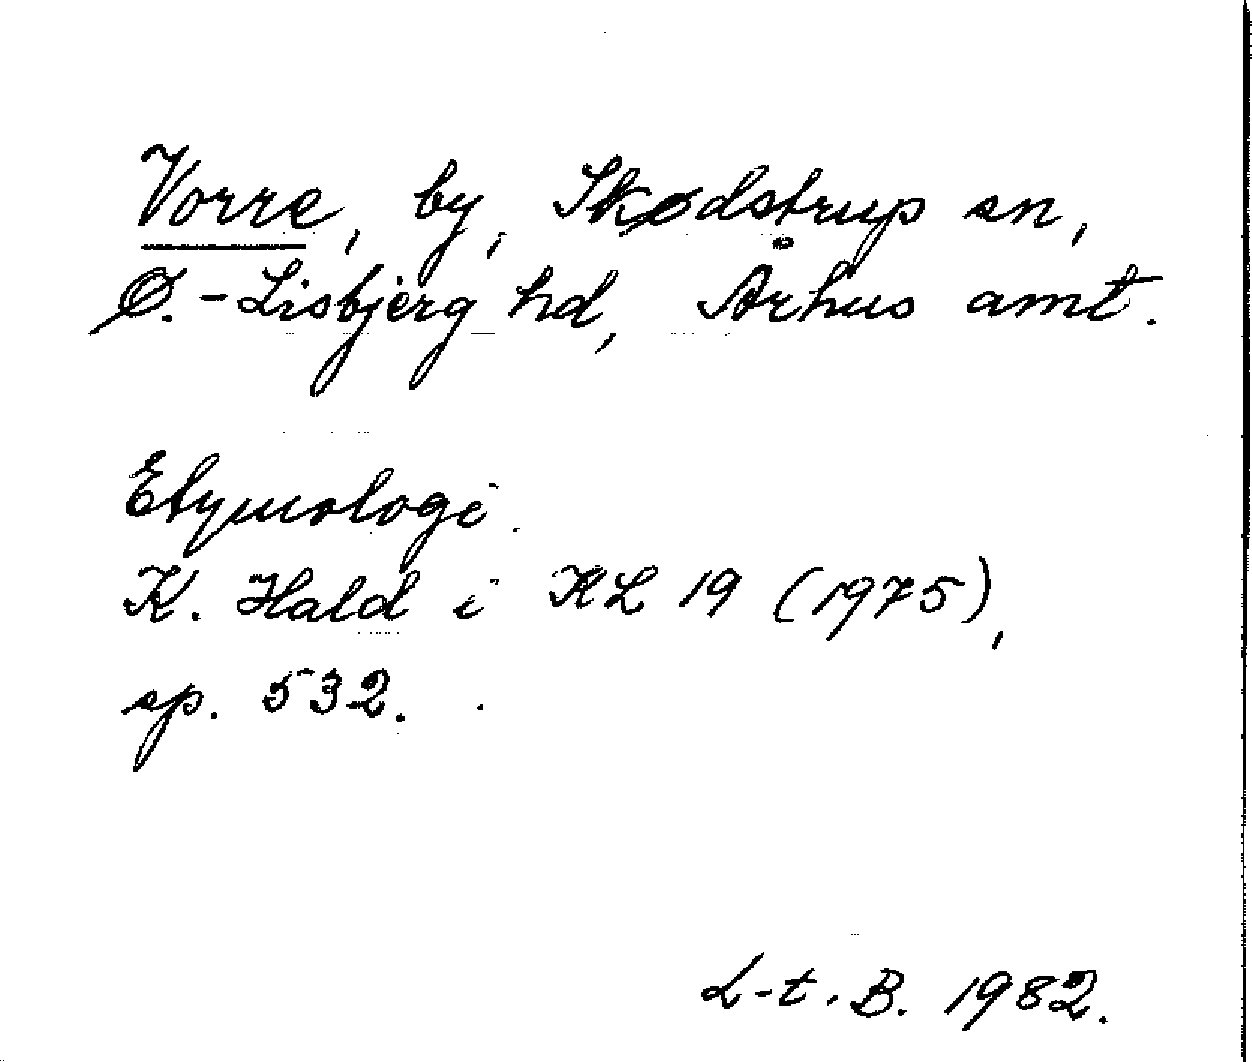 Vorre, by, Skødstrup sn,
Ø.-Lisbjerg hd, Århus amt.
Etymologi.
K. Hald i KL 19 (1975),
sp. 532.
L-t. B. 1982.